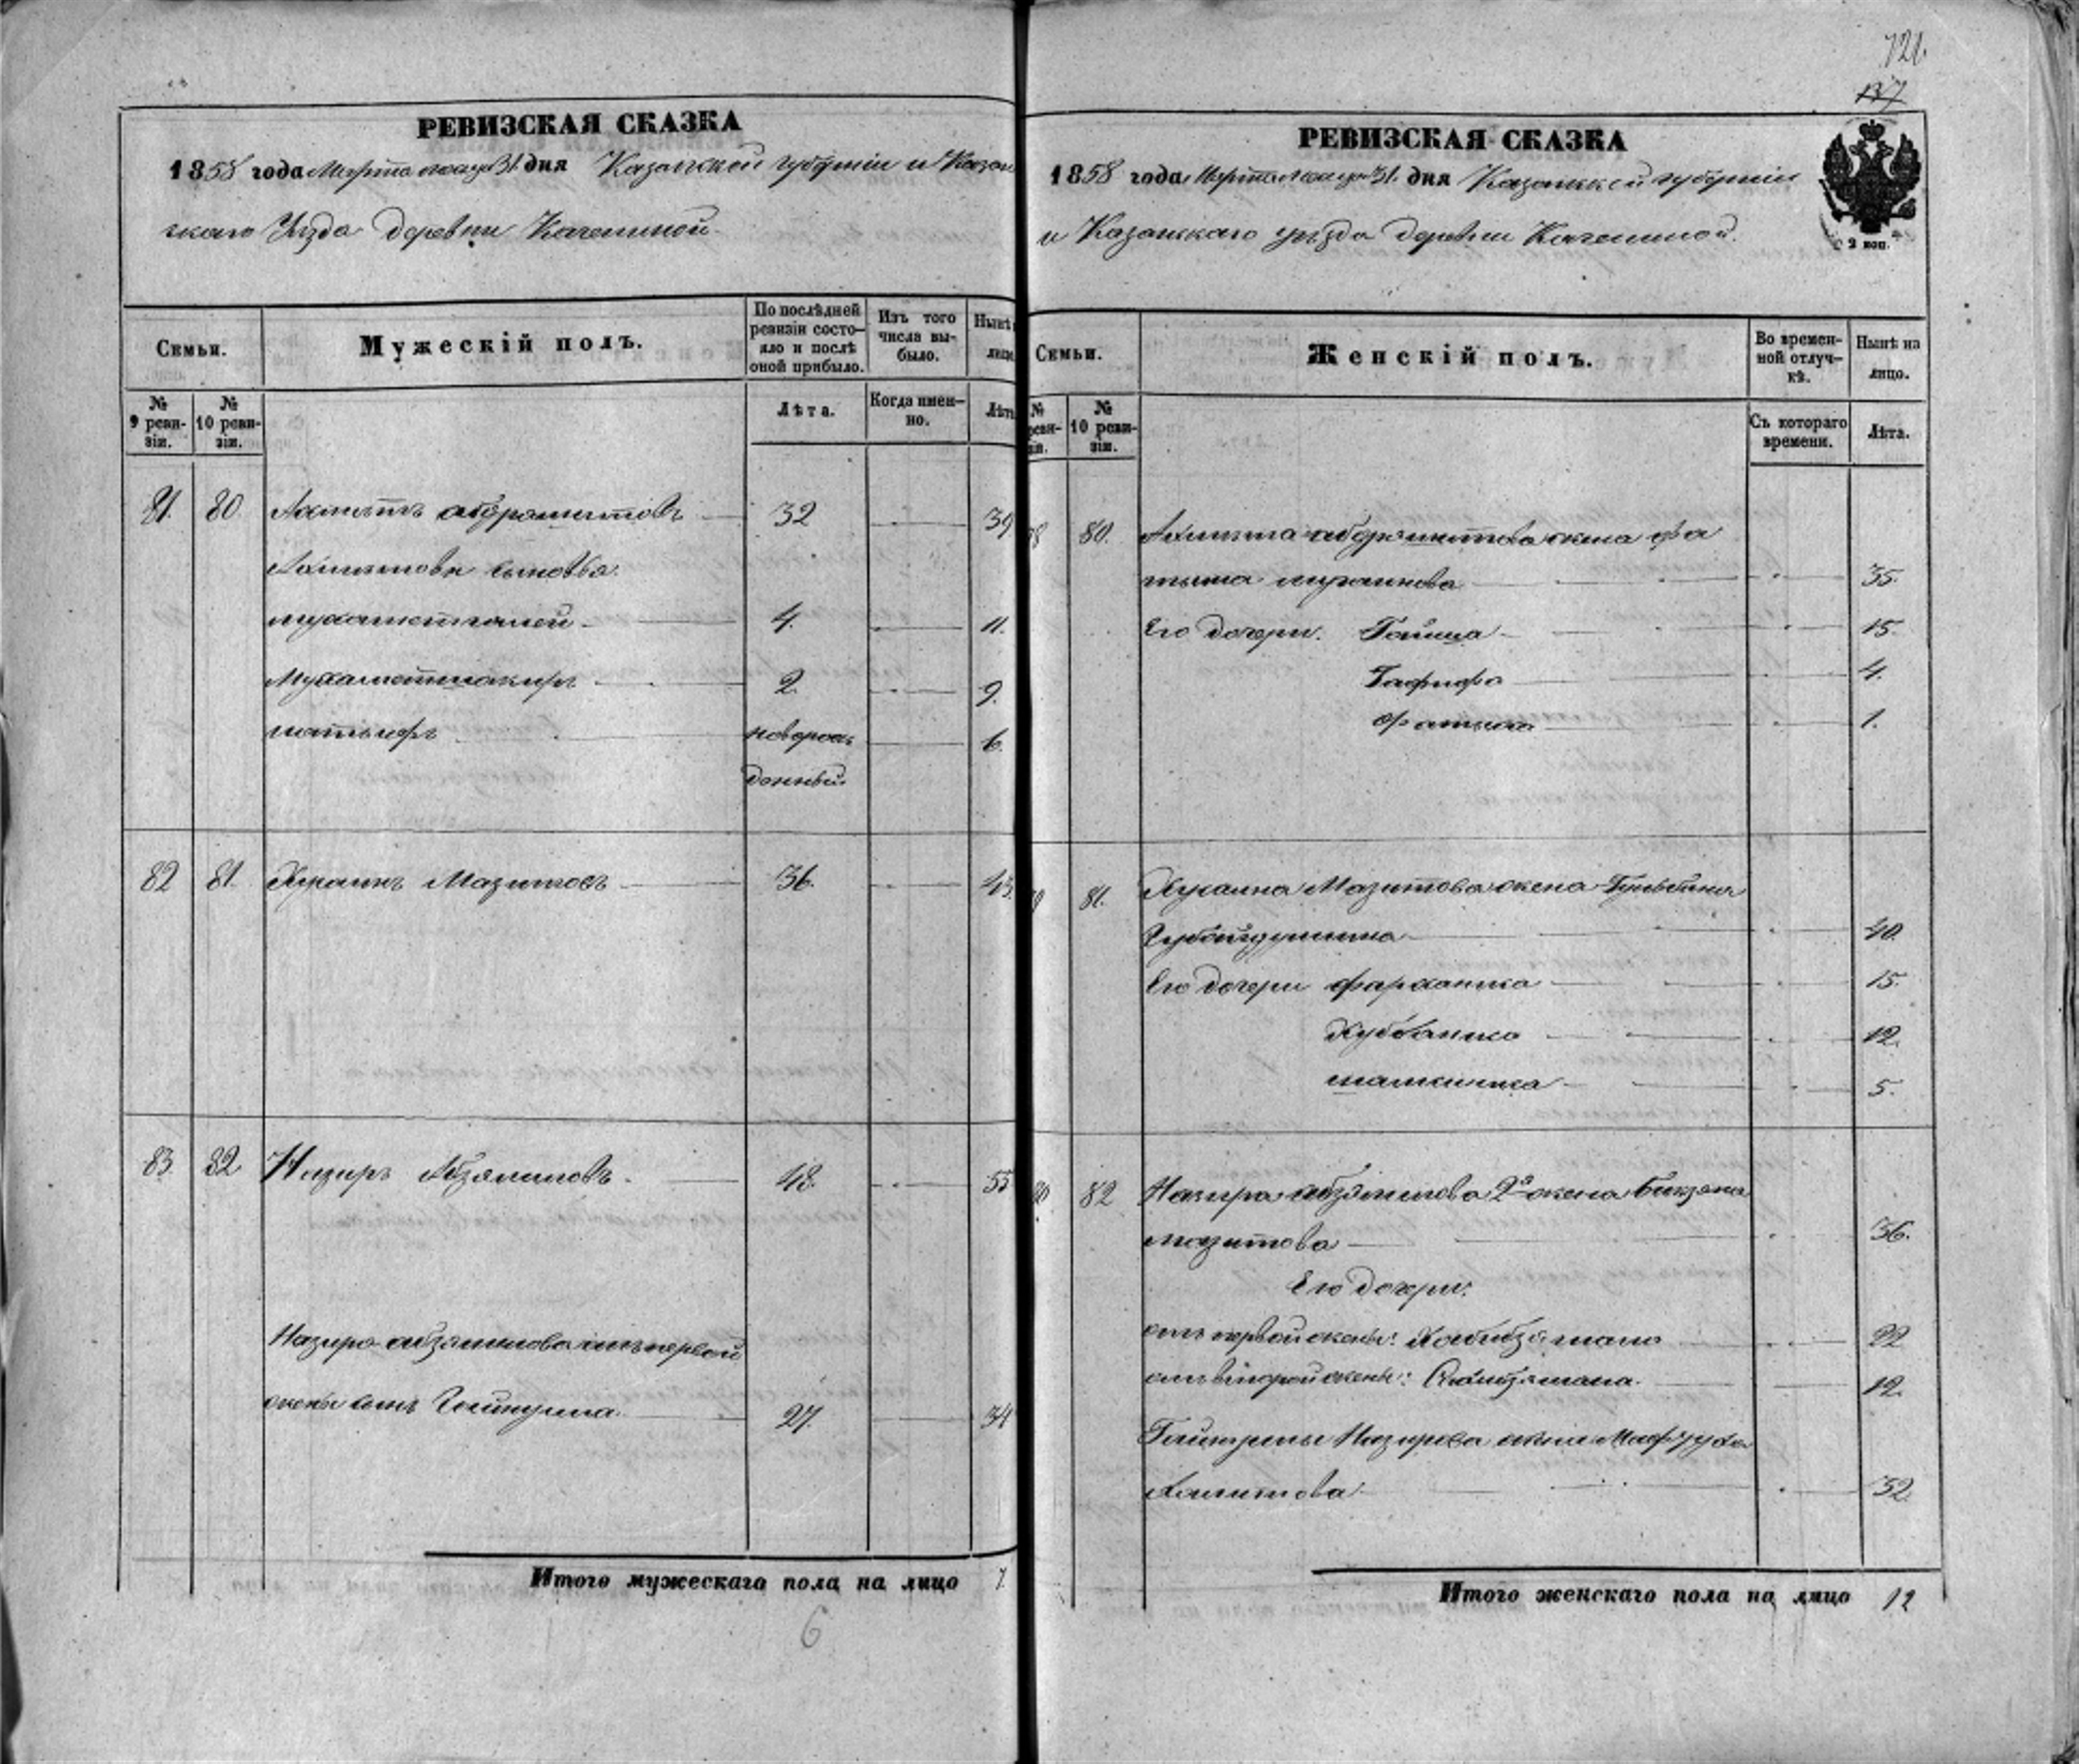 РЕВИЗСКАЯ СКАЗКА
1858 года Марта месяца 31. дня Казанской губернии и Казан
скаго Уезда деревни Качелиной.
Семьи.
Мужескій полъ.
По послѣдней ревизіи состо-яло и послѣ оной прибыло.
Изъ того числа вы-было.
Нынѣ
лицо
№ 9 реви-зіи.
№ 10 реви-зіи.
Лѣта.
Когда имен-но.
Лѣт
81. 80. Ахметъ абдрашитовъ 32 39
Ахметовы сыновья.
мухаметгалей 4. 11.
Мухаметшакиръ 2. 9.
новорож 6.
денный.
82 81. Хусаинъ Мазитовъ 36. 43.
83. 82 Назиръ Абзялиловъ. 48. 55
Назира абзялилова отъ первой
жены сынъ Гайнулла. 27. 34
Итого мужескаго пола на лицо 7.
6
721.
137
РЕВИЗСКАЯ СКАЗКА
1858 года Марта месяца 31. дня Казанской губернии
и Казанскаго уезда деревни Качелиной.
2 коп.
Семьи.
Женскій полъ.
Во времен-ной отлуч-кѣ.
Нынѣ на лицо.
№ реви-зіи.
№ 10 реви-зіи.
Съ котораго времени.
Лѣта.
80. Ахмета абдрашитова жена фа
тыма 35.
Его дочери. Гайша 15.
4.
фатыма 1.
81. Хусаина Мазитова жена
Губайдуллина 40.
Его дочери фарханиса 15.
Хуббаниса 12.
5.
82 Назира абзялилова 2я жена
мазитова 36.
Его дочери.
отъ первой жены: Хабибзямала 22
отъ второй жены: 12.
Гайнуллы Назирова жена Мафтуха
32.
Итого женскаго пола на лицо 12